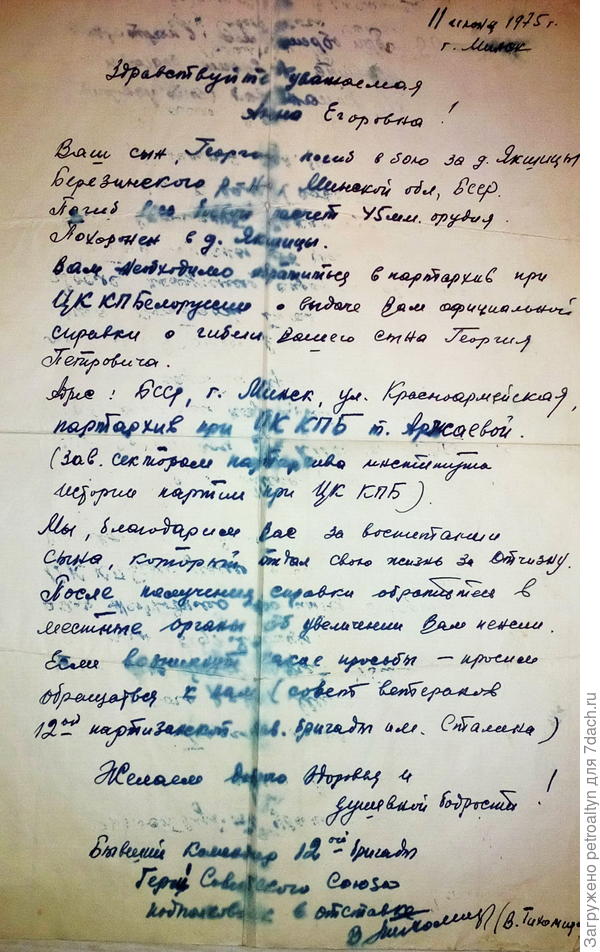 11 июня 1975 г.
г. Минск
Здравствуйте уважаемая
Анна Егоровна!
Ваш сын, Георгий погиб в бою за д. Якшицы
Березинского р-на Минской обл, БССР.
Погиб весь боевой расчет 45мм. орудия.
Похоронен в д. Якшицы.
Вам необходимо обратиться в партархив при
ЦК КПБелоруссии о выдаче Вам официальной
справки о гибели Вашего сына Георгия
Петровича.
Адрес: БССР, г. Минск, ул. Красноармейская,
партархив при ЦК КПБ т. Аржаевой.
(зав. сектором партархива института
истории партии при ЦК КПБ).
Мы, благодарим Вас за воспитание
сына, который отдал свою жизнь за Отчизну.
После получения справки обратитесь в
местные органы об увеличении Вам пенсии.
Если возникнут какие просьбы – просим
обращаться к нам (совет ветеранов
12ой партизанской кав. бригады им. Сталина)
Желаем доброго здоровья и
душевной бодрости!
Бывший командир 12ой бригады
Герой Советского Союза
подполковник в отставке
В. Тихомир (В. Тихомиро
Загружено petroaltyn для 7dach.ru